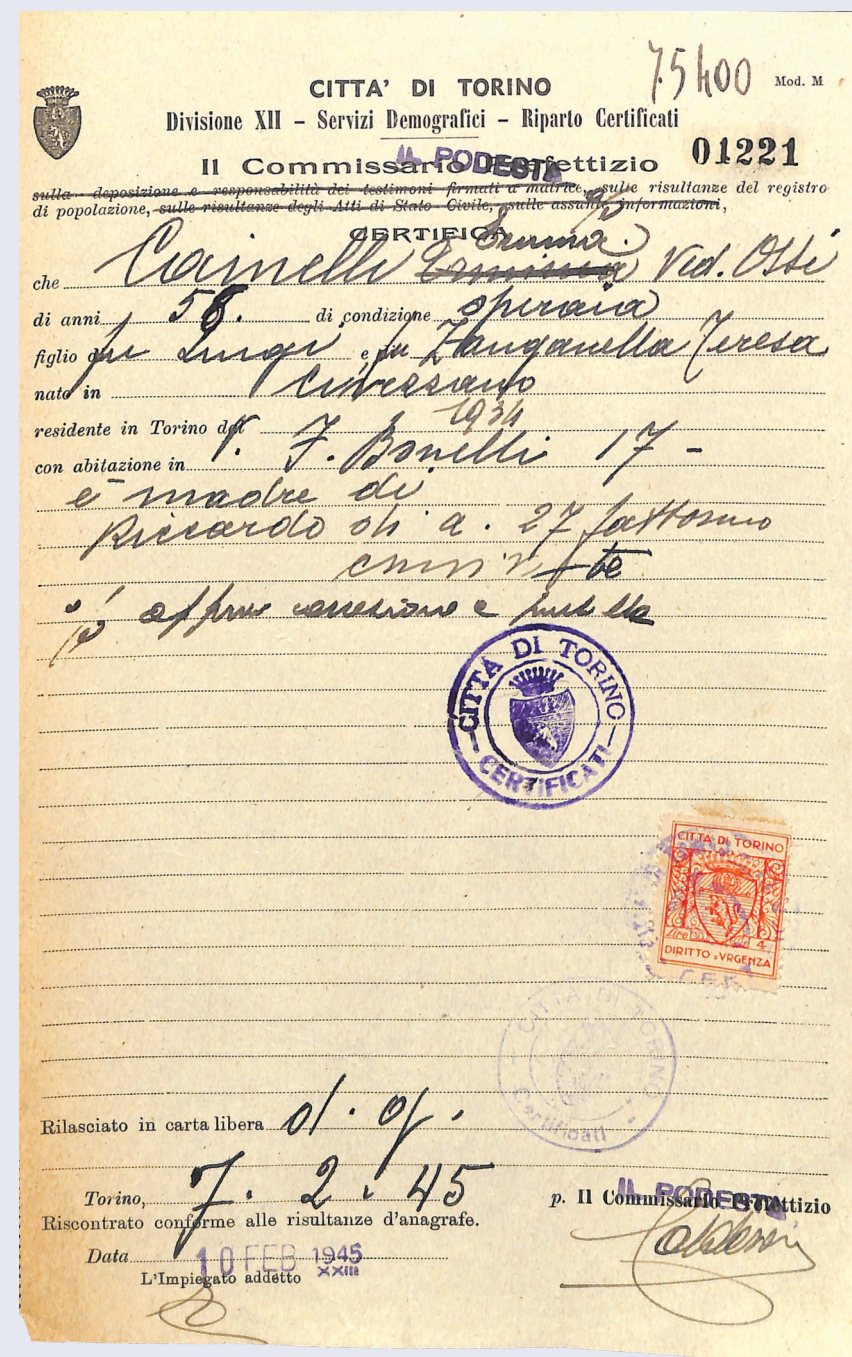 75400
Mod. M
CITTA' DI TORINO
Divisione XII – Servizi Demografici – Riparto Certificati
01221
Il Commissario Prefettizio
IL PODESTA
sulla deposizione e responsabilità dei testimoni firmati a matrice, sulle risultanze del registro
di popolazione, sulle risultanze degli Atti di Stato Civile, sulle assunte informazioni,
CERTIFICA
che Cainelli Erminia Ved. Ossi
di anni 58. di condizione operaia
figlio fu Luigi e fu Zanganella Teresa
nato in Civezzano
residente in Torino dal 1934
con abitazione in V. F. Bonelli 17 -
è madre di
Riccardo di a. 27 fattorino
CITTÀ DI TORINO
CERTIFICATI
CITTÀ DI TORINO
lire 4
DIRITTO D'VRGENZA
CITTÀ DI TORINO
Certificati
Rilasciato in carta libera d. g.
Torino, 7. 2. 45
p. Il Commissario Prefettizio
IL PODESTA
Riscontrato conforme alle risultanze d'anagrafe.
Data 10 FEB 1945
XXIII
L'Impiegato addetto